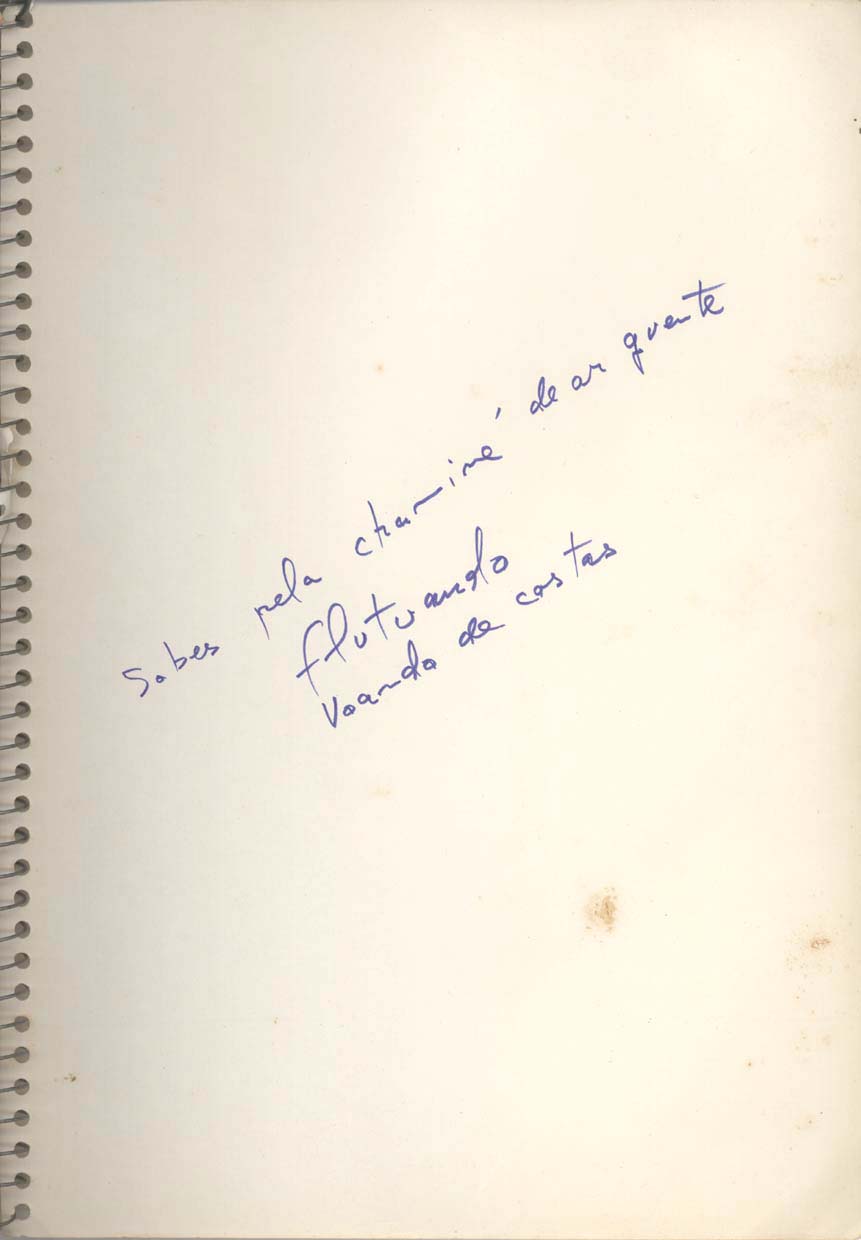 Sobes pela chaminé de ar quente
flutuando
voando de costas